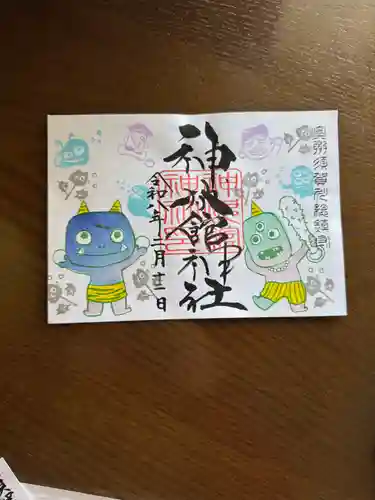 奥州須賀川総鎮守
神炊館神社
令和八年二月廿一日